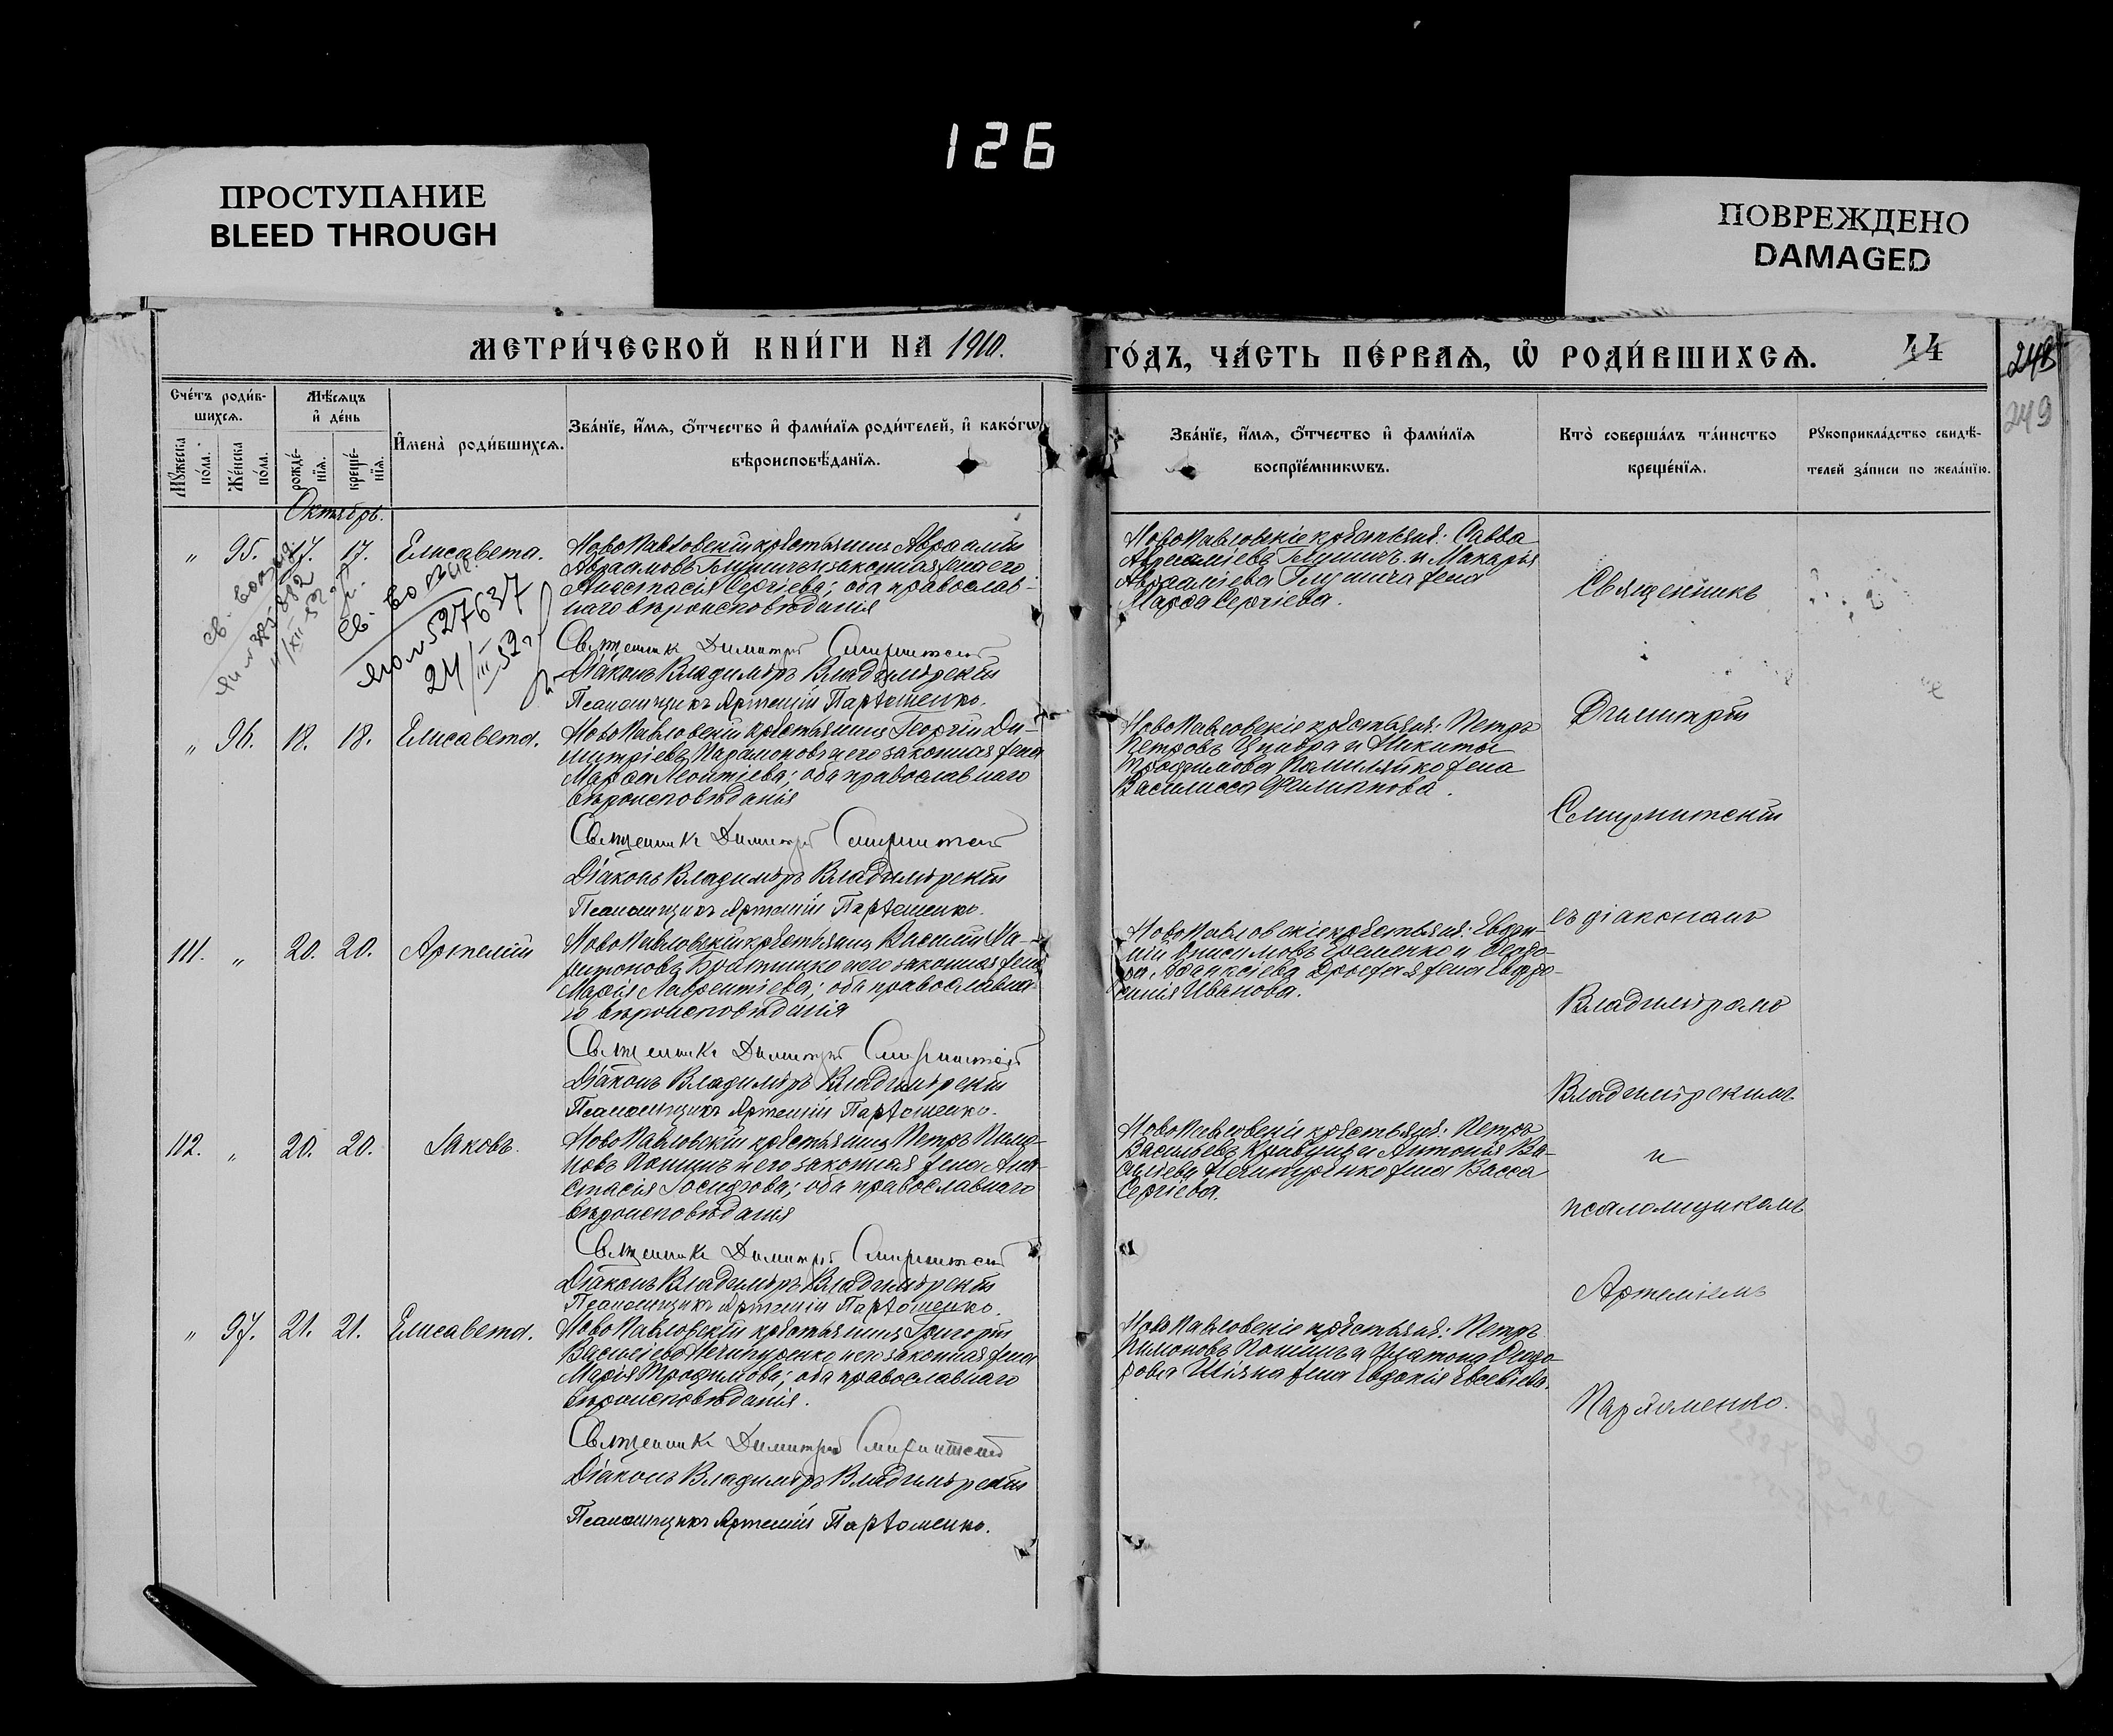 126
ПРОСТУПАНИЕ
BLEED THROUGH
ПОВРЕЖДЕНО
DAMAGED
МЕТРИ́ЧЕСКОЙ КНИ́ГИ НА 1910.
ГО́ДЪ, ЧА́СТЬ ПЕ́РВАѦ, Ѡ҆ РОДИ́ВШИХСѦ.
44
249
Сче́тъ роди́в-
шихсѧ.
Мꙋ́жеска
по́ла.
Же́нска
по́ла.
Мѣ́сѧцъ
и҆ де́нь
рожде́-
нїѧ.
креще́-
нїѧ.
И҆мена̀ роди́вшихсѧ.
Зва́нїе, и҆́мѧ, ѻ҆́тчество и҆ фами́лїѧ роди́телей, и҆ како́гѡ
вѣроисповѣ́данїѧ.
Зва́нїе, и҆́мѧ, ѻ҆́тчество и҆ фами́лїѧ
воспрїе́мникѡвъ.
Кто̀ соверша́лъ та́инство
креще́нїѧ.
Рꙋкоприкла́дство свидѣ́-
телей за́писи по жела́нїю.
Октябрь.
" 95. 17. 17. Елисавета.
НовоПавловскій крестьянинъ Авраамій
Авраамовъ и законная жена его
Анастасія Сергіева; оба православ-
наго вѣроисповѣданія
Священникъ Димитрій Смирнитскій
Діаконъ Владиміръ Владимірскій
Псаломщикъ Артемій Пархоменко.
НовоПавловскіе крестьяне: Савва
Авраміевъ и Макарія
Авраамїева жена
Марѳа Сергіева.
527637
24/III 52 г
" 96. 18. 18. Елисавета.
НовоПавловскій крестьянинъ Георгій Ди-
митріевъ Парамоновъ и его законная жена
Марѳа Леонтіева; оба православнаго
вѣроисповѣданія
Священникъ Димитрій Смирнитскій
Діаконъ Владиміръ Владимірскій
Псаломщикъ Артемій Пархоменко.
НовоПавловскіе крестьяне: Петръ
Петровъ Цыбра и Никиты
Трофимова жена
Василисса Филиппова.
111. " 20. 20. Артемій
НовоПавловскій крестьянинъ Василій Ха-
ритоновъ и его законная жена
Марія Лаврентіева; оба православна-
го вѣроисповѣданія
Священникъ Димитрій Смирнитскій
Діаконъ Владиміръ Владимірскій
Псаломщикъ Артемій Пархоменко.
НовоПавловскіе крестьяне:
Онисимовъ Еременко и Ѳеодо-
ра жена Евфро-
синія Иванова.
112. " 20. 20. Іаковъ.
НовоПавловскій крестьянинъ Петръ Пимо-
новъ Попичъ и его законная жена Ана-
стасія Іосифова; оба православнаго
вѣроисповѣданія
Священникъ Димитрій Смирнитскій
Діаконъ Владиміръ Владимірскій
Псаломщикъ Артемій Пархоменко.
НовоПавловскіе крестьяне: Петръ
Васильевъ Кравецъ и Антонія Ва-
сильева Нечипуренко жена Васса
Сергіева.
" 97. 21. 21. Елисавета.
НовоПавловскій крестьянинъ Григорій
Васильевъ Нечипуренко и его законная жена
Марія Трофимова; оба православнаго
вѣроисповѣданія.
Священникъ Димитрій Смирнитскій
Діаконъ Владиміръ Владимірскій
Псаломщикъ Артемій Пархоменко.
НовоПавловскіе крестьяне: Петръ
Пимоновъ Попичъ и Ѳеодо-
рова жена Евдокія Евсевіева.
Священникъ
Димитрій
Смирнитскій
съ діакономъ
Владиміромъ
Владимірскимъ
и
псаломщикомъ
Артеміемъ
Пархоменко.